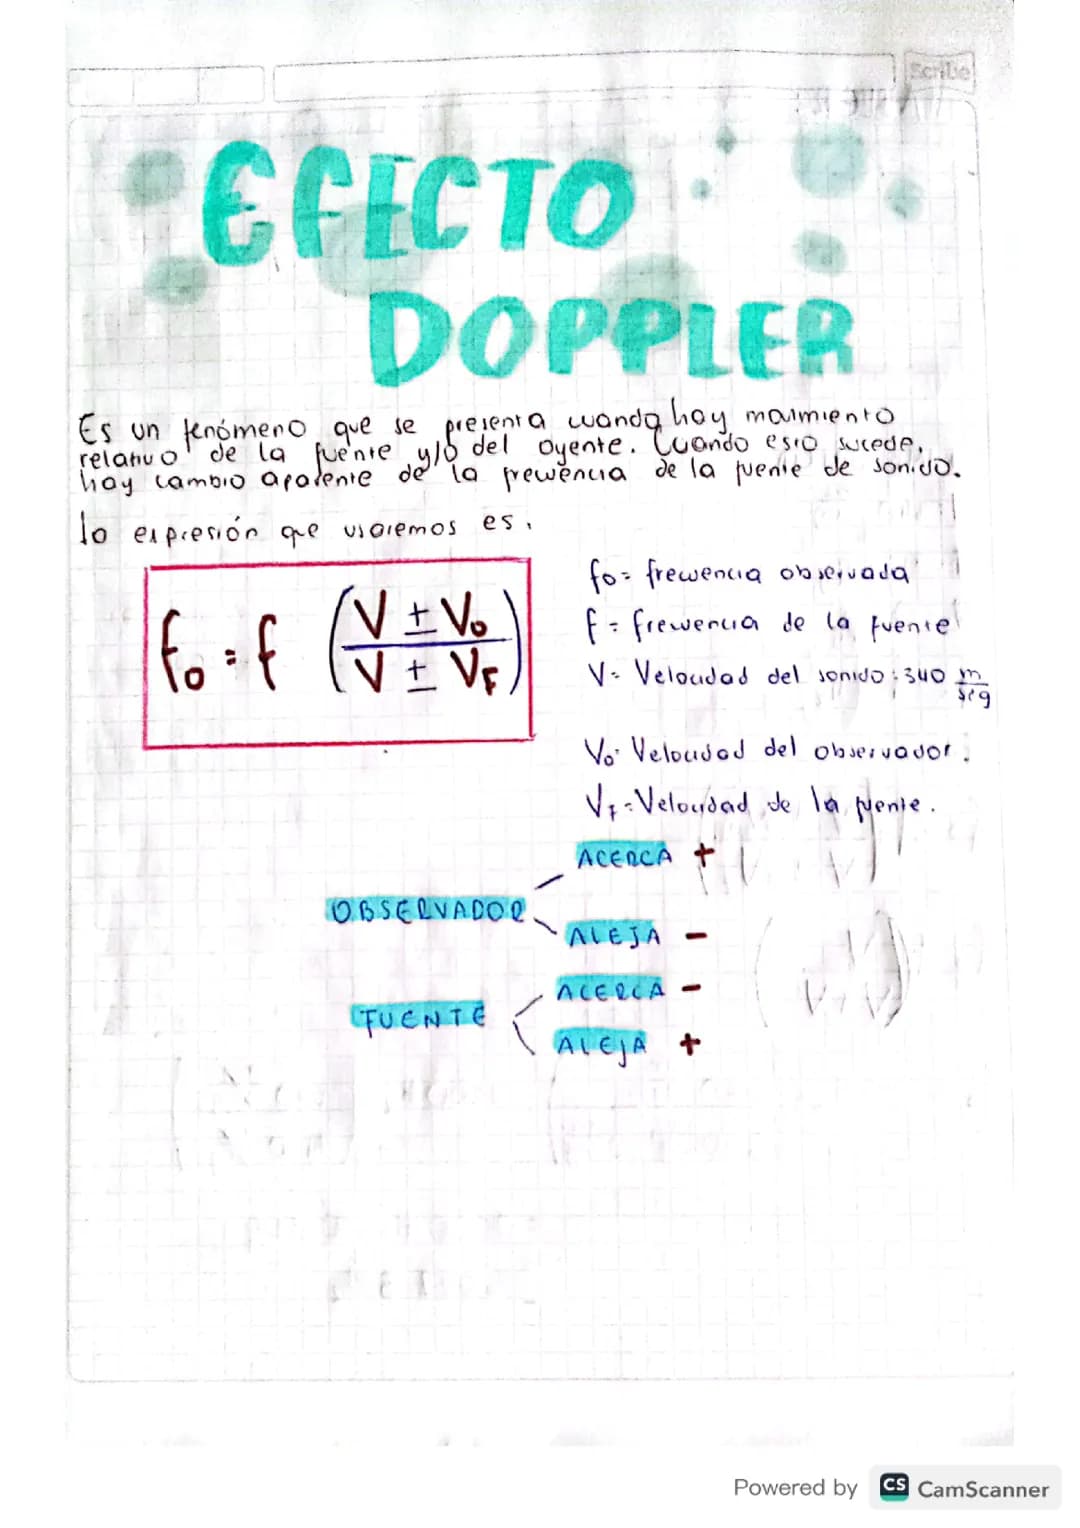 Scribe
EFECTO
DOPPLER
Es un fenómeno que se presenta cuando hay movimiento
relativo de la fuente y/o del oyente. Cuando esto sucede,
hay cambio aparente de la frecuencia de la fuente de sonido.
la expresión que usaremos es.
fo = f (V ± Vo / V ± VF)
fo = frecuencia observada
f = frecuencia de la fuente
V = Velocidad del sonido: 340 m/seg
Vo: Velocidad del observador.
Vf = Velocidad de la fuente.
OBSERVADOR
ACERCA +
ALEJA −
FUENTE
ACERCA −
ALEJA +
Powered by CS CamScanner